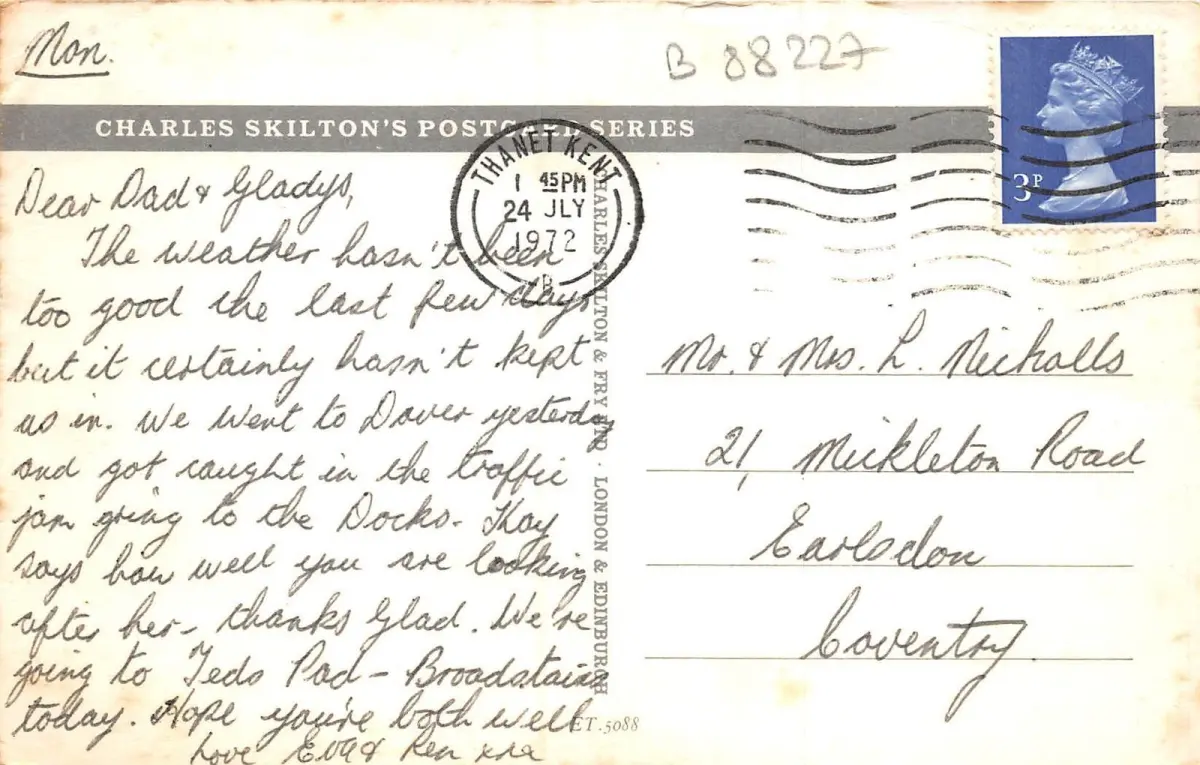 Mon.
B 88227
CHARLES SKILTON'S POSTCARD SERIES
THANET KENT
1 45PM
24 JLY
1972
B
3P
Dear Dad & Gladys,
The weather hasn't been
too good the last few days
but it certainly hasn't kept
us in. We went to Dover yesterday
and got caught in the traffic
jam going to the Docks. Kay
says how well you are looking
after her - thanks Glad. We're
going to Teds Pad - Broadstairs
today. Hope you're both well
Love Eva & Ken
CHARLES SKILTON & FRY LTD · LONDON & EDINBURGH
ET.5088
Mr. & Mrs. L. Nicholls
21, Mickleton Road
Earlsdon
Coventry.